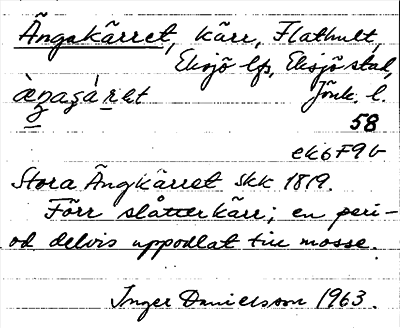 Ängakärret, kärr, Flathult,
Eksjö lfs, Eksjö stad,
Jönk. l.
58
ek6F9b
Stora Ängkärret skk 1819.
Förr slåtterkärr; en peri-
od delvis uppodlat till mosse.
Inger Danielsson 1963.